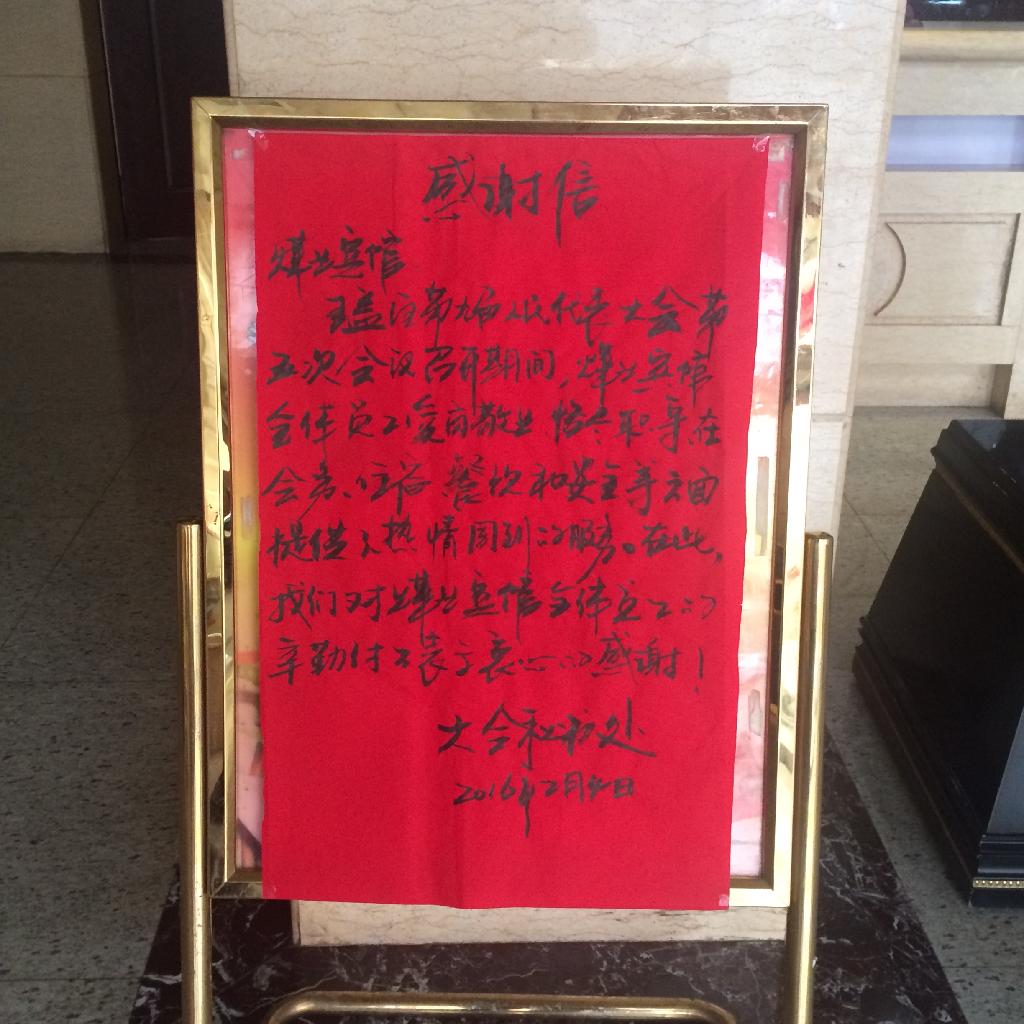 感谢信
煤业宾馆
王益区第九届人民代表大会第
五次会议召开期间，煤业宾馆
全体员工爱岗敬业 恪尽职守在
会务、住宿 餐饮和安全等方面
提供了热情周到的服务。在此，
我们对煤业宾馆全体员工的
辛勤付出表示衷心的感谢！
大会秘书处
2016年2月日